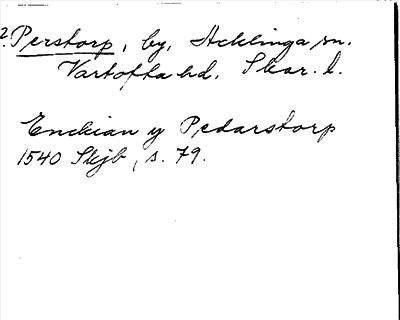 ?Perstorp, by, Acklinga sn.
Vartofta hd. Skar. l.
Enckian y Pedarstorp
1540 Skjb, s. 79.